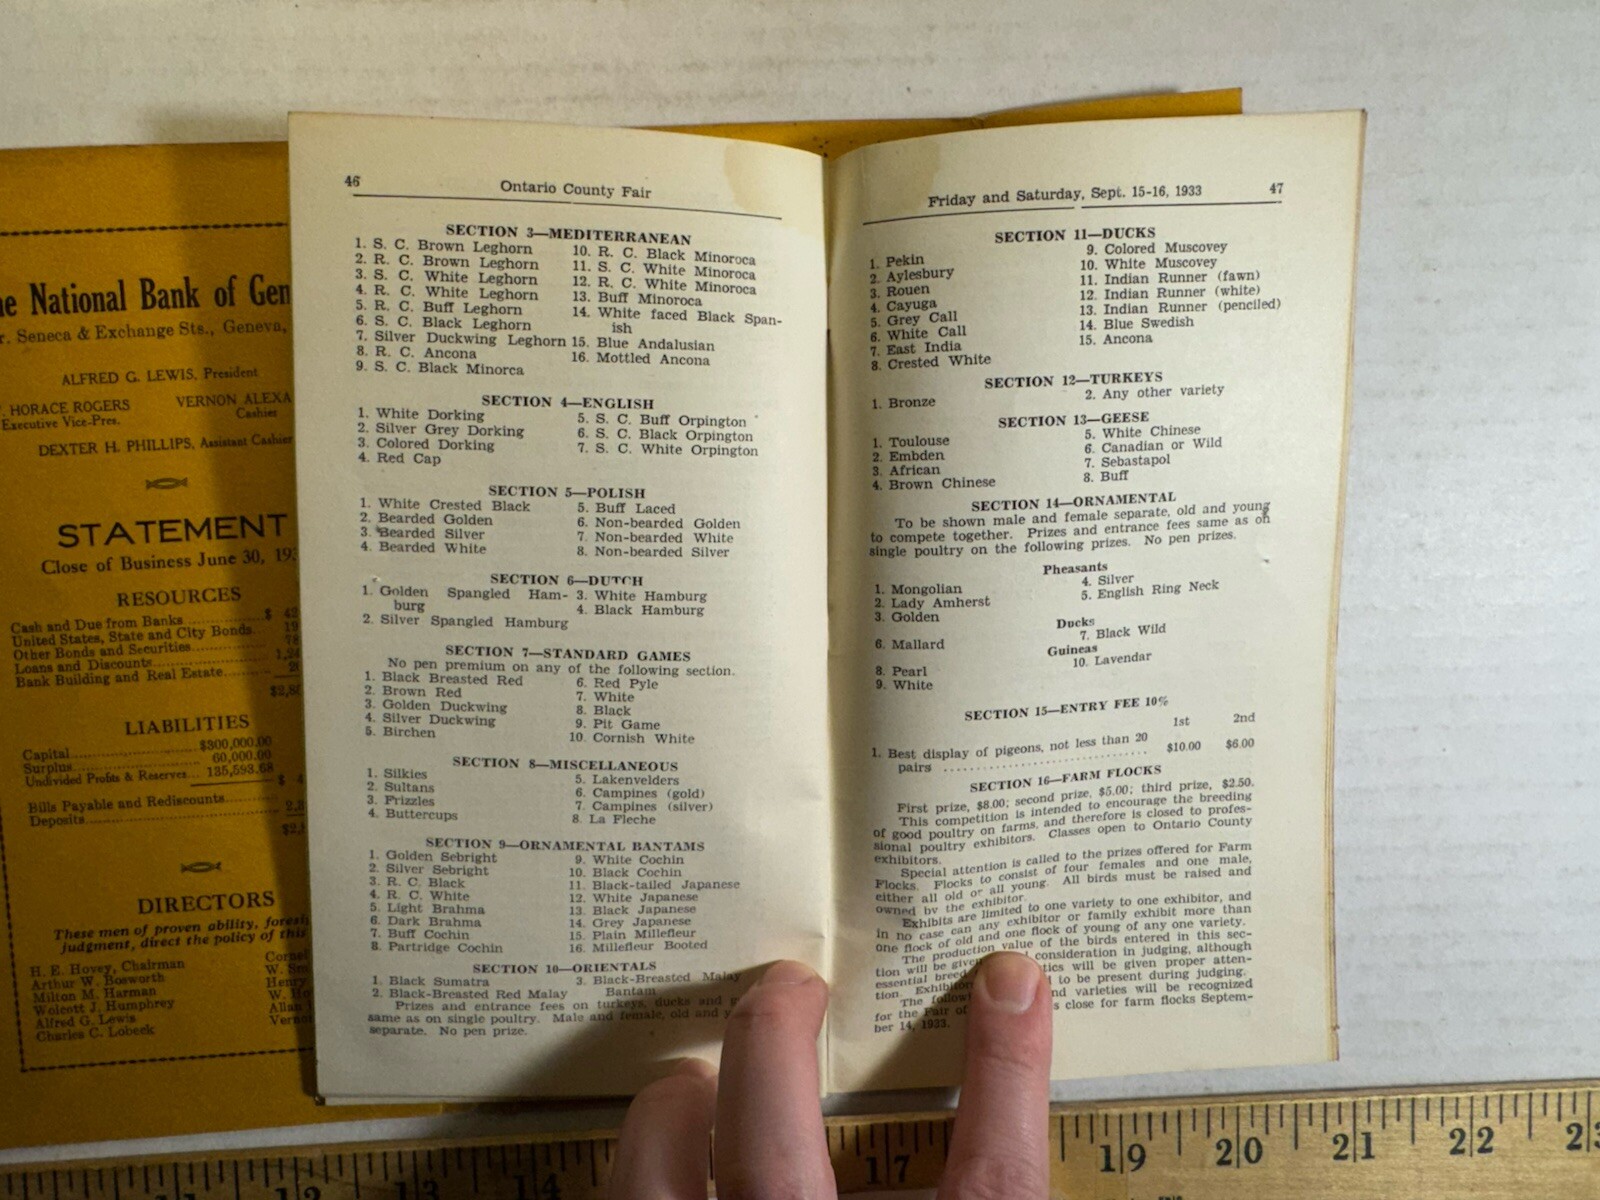 he National Bank of Gen
r. Seneca & Exchange Sts., Geneva,
ALFRED G. LEWIS, President
HORACE ROGERS
Executive Vice-Pres.
VERNON ALEXA
Cashier
DEXTER H. PHILLIPS, Assistant Cashier
STATEMENT
Close of Business June 30, 19
RESOURCES
Cash and Due from Banks $ 42
United States, State and City Bonds 19
Other Bonds and Securities 78
Loans and Discounts 1,24
Bank Building and Real Estate
$2,8
LIABILITIES
Capital $300,000.00
Surplus 60,000.00
Undivided Profits & Reserves 135,593.68
$ 4
Bills Payable and Rediscounts
Deposits 2,3
$2,
DIRECTORS
These men of proven ability, foresi
judgment, direct the policy of this
H. E. Hovey, Chairman
Arthur W. Bosworth
Milton M. Harman
Wolcott J. Humphrey
Alfred G. Lewis
Charles C. Lobeck
Cornel
W. Sm
Henry
W. Ho
Allan
Verno
46
Ontario County Fair
SECTION 3—MEDITERRANEAN
1. S. C. Brown Leghorn
2. R. C. Brown Leghorn
3. S. C. White Leghorn
4. R. C. White Leghorn
5. R. C. Buff Leghorn
6. S. C. Black Leghorn
7. Silver Duckwing Leghorn
8. R. C. Ancona
9. S. C. Black Minorca
10. R. C. Black Minoroca
11. S. C. White Minoroca
12. R. C. White Minoroca
13. Buff Minoroca
14. White faced Black Span-
ish
15. Blue Andalusian
16. Mottled Ancona
SECTION 4—ENGLISH
1. White Dorking
2. Silver Grey Dorking
3. Colored Dorking
4. Red Cap
5. S. C. Buff Orpington
6. S. C. Black Orpington
7. S. C. White Orpington
SECTION 5—POLISH
1. White Crested Black
2. Bearded Golden
3. Bearded Silver
4. Bearded White
5. Buff Laced
6. Non-bearded Golden
7. Non-bearded White
8. Non-bearded Silver
SECTION 6—DUTCH
1. Golden Spangled Ham-
burg
2. Silver Spangled Hamburg
3. White Hamburg
4. Black Hamburg
SECTION 7—STANDARD GAMES
No pen premium on any of the following section.
1. Black Breasted Red
2. Brown Red
3. Golden Duckwing
4. Silver Duckwing
5. Birchen
6. Red Pyle
7. White
8. Black
9. Pit Game
10. Cornish White
SECTION 8—MISCELLANEOUS
1. Silkies
2. Sultans
3. Frizzles
4. Buttercups
5. Lakenvelders
6. Campines (gold)
7. Campines (silver)
8. La Fleche
SECTION 9—ORNAMENTAL BANTAMS
1. Golden Sebright
2. Silver Sebright
3. R. C. Black
4. R. C. White
5. Light Brahma
6. Dark Brahma
7. Buff Cochin
8. Partridge Cochin
9. White Cochin
10. Black Cochin
11. Black-tailed Japanese
12. White Japanese
13. Black Japanese
14. Grey Japanese
15. Plain Millefleur
16. Millefleur Booted
SECTION 10—ORIENTALS
1. Black Sumatra
2. Black-Breasted Red Malay
3. Black-Breasted Malay
Bantam
Prizes and entrance fees on turkeys, ducks and
same as on single poultry. Male and female, old and
separate. No pen prize.
Friday and Saturday, Sept. 15-16, 1933
47
SECTION 11—DUCKS
1. Pekin
2. Aylesbury
3. Rouen
4. Cayuga
5. Grey Call
6. White Call
7. East India
8. Crested White
9. Colored Muscovey
10. White Muscovey
11. Indian Runner (fawn)
12. Indian Runner (white)
13. Indian Runner (penciled)
14. Blue Swedish
15. Ancona
SECTION 12—TURKEYS
1. Bronze
2. Any other variety
SECTION 13—GEESE
1. Toulouse
2. Embden
3. African
4. Brown Chinese
5. White Chinese
6. Canadian or Wild
7. Sebastapol
8. Buff
SECTION 14—ORNAMENTAL
To be shown male and female separate, old and young
to compete together. Prizes and entrance fees same as on
single poultry on the following prizes. No pen prizes.
Pheasants
1. Mongolian
2. Lady Amherst
3. Golden
4. Silver
5. English Ring Neck
Ducks
6. Mallard
7. Black Wild
Guineas
8. Pearl
9. White
10. Lavendar
SECTION 15—ENTRY FEE 10%
1st 2nd
1. Best display of pigeons, not less than 20
pairs $10.00 $6.00
SECTION 16—FARM FLOCKS
First prize, $8.00; second prize, $5.00; third prize, $2.50.
This competition is intended to encourage the breeding
of good poultry on farms, and therefore is closed to profes-
sional poultry exhibitors. Classes open to Ontario County
exhibitors.
Special attention is called to the prizes offered for Farm
Flocks. Flocks to consist of four females and one male,
either all old or all young. All birds must be raised and
owned by the exhibitor.
Exhibits are limited to one variety to one exhibitor, and
in no case can any exhibitor or family exhibit more than
one flock of old and one flock of young of any one variety.
The production value of the birds entered in this sec-
tion will be given consideration in judging, although
essential breed tics will be given proper atten-
tion. Exhibitor to be present during judging.
The follow nd varieties will be recognized
for the Fair of s close for farm flocks Septem-
ber 14, 1933.
12 13 14 17 19 20 21 22 23